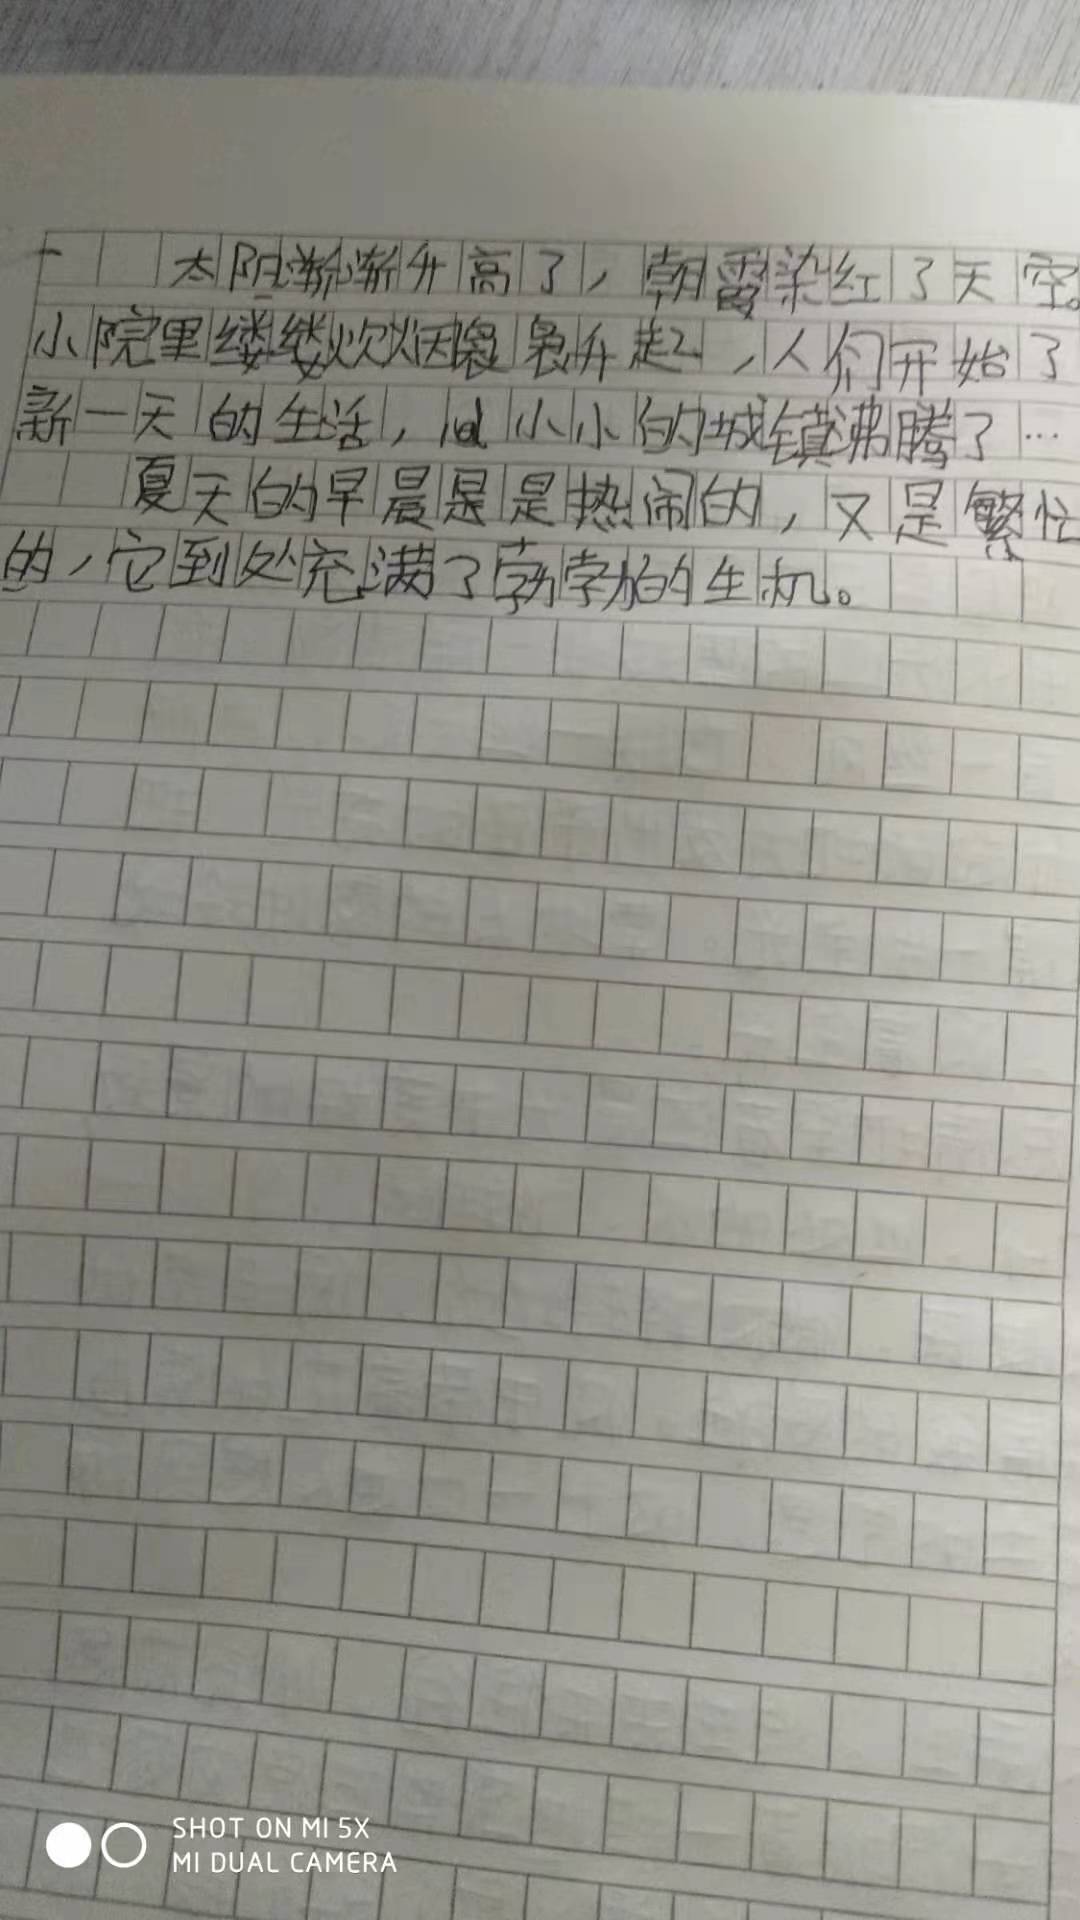 太阳渐渐升高了，朝霞染红了天空。
小院里缕缕炊烟袅袅升起，人们开始了
新一天的生活，小小的城镇沸腾了…
夏天的早晨是是热闹的，又是繁忙
的，它到处充满了勃勃的生机。
SHOT ON MI 5X
MI DUAL CAMERA